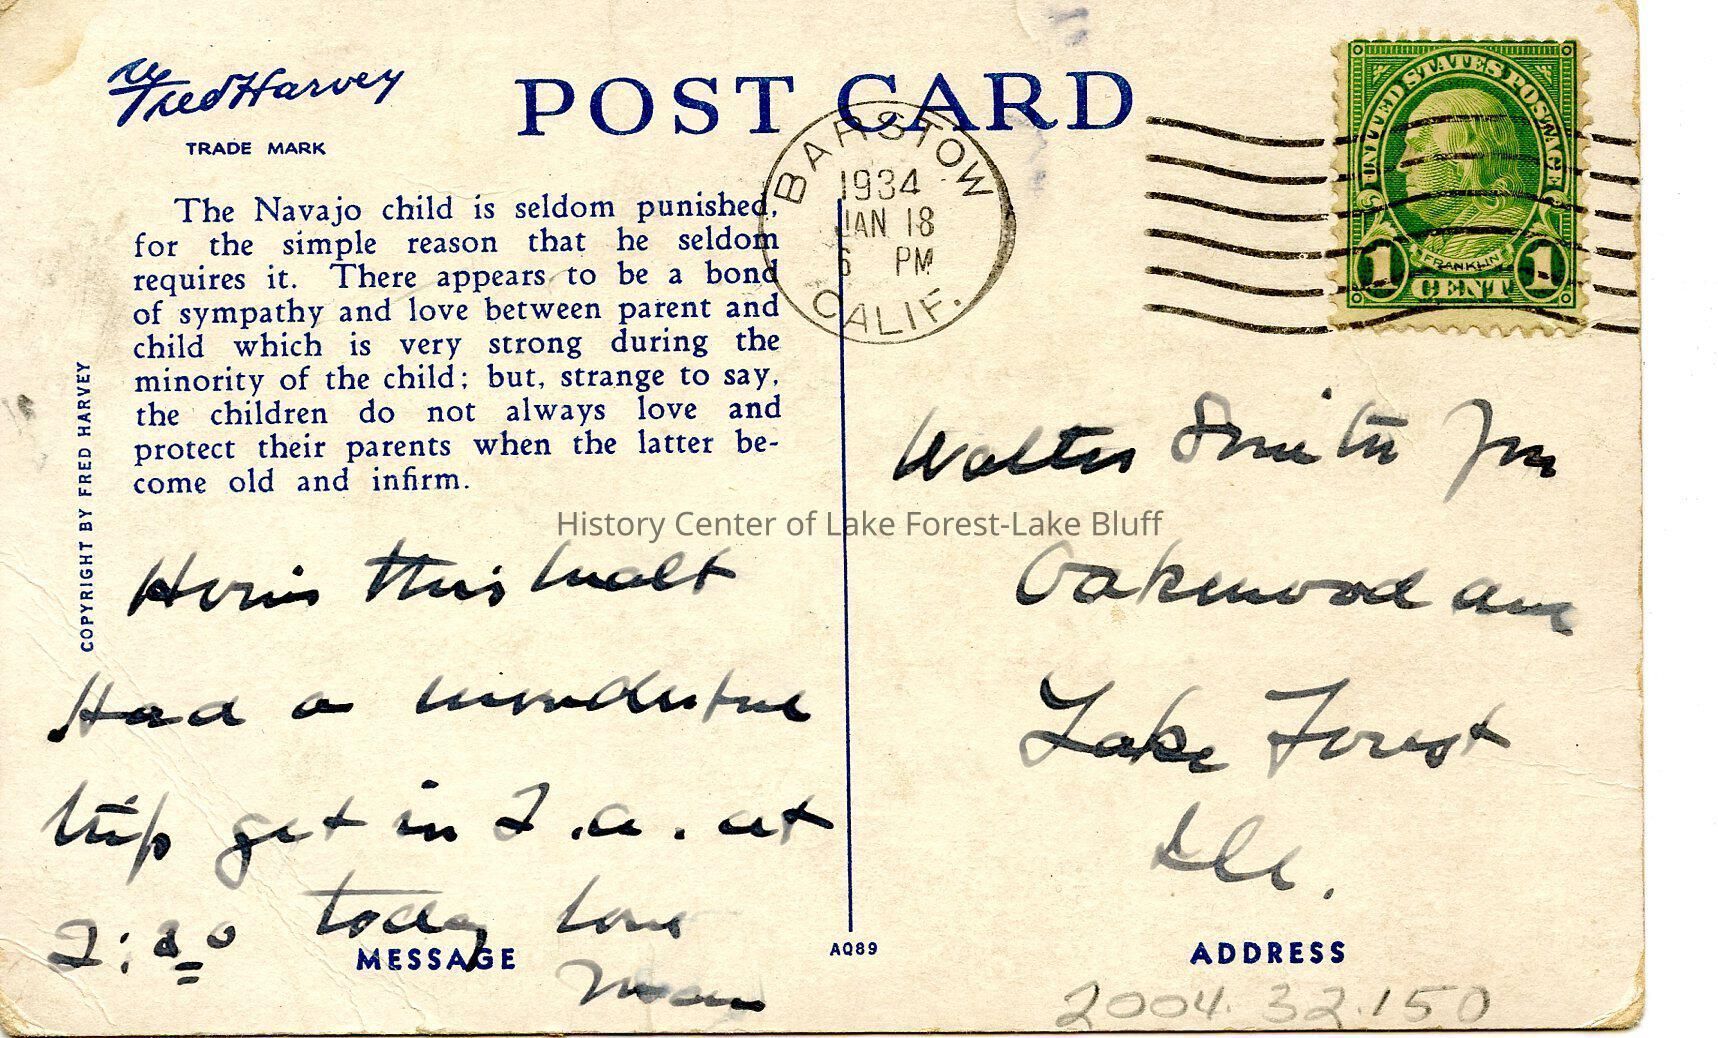 Fred Harvey
TRADE MARK
POST CARD
BARSTOW
1934
JAN 18
6 PM
CALIF.
UNITED STATES POSTAGE
FRANKLIN
1 CENT 1
The Navajo child is seldom punished,
for the simple reason that he seldom
requires it. There appears to be a bond
of sympathy and love between parent and
child which is very strong during the
minority of the child; but, strange to say,
the children do not always love and
protect their parents when the latter be-
come old and infirm.
COPYRIGHT BY FRED HARVEY
History Center of Lake Forest-Lake Bluff
this Walt
Had a wonderful
trip get in L.A. at
today love
Mom
MESSAGE
AQ89
Walter Smith Jr
Oakwood Ave
Lake Forest
Ill.
ADDRESS
2004.32.150